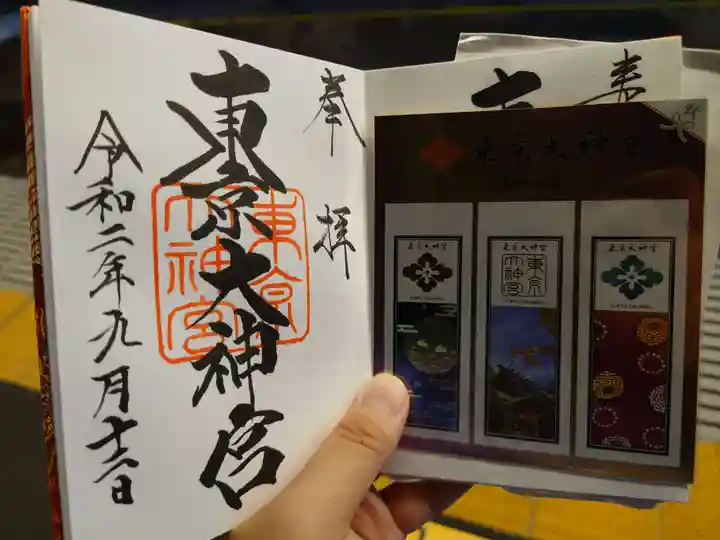 奉拝
東京大神宮
東京大神宮
令和二年九月十二日
東京大神宮
東京大神宮
東京大神宮
東京大神宮
東京大神宮